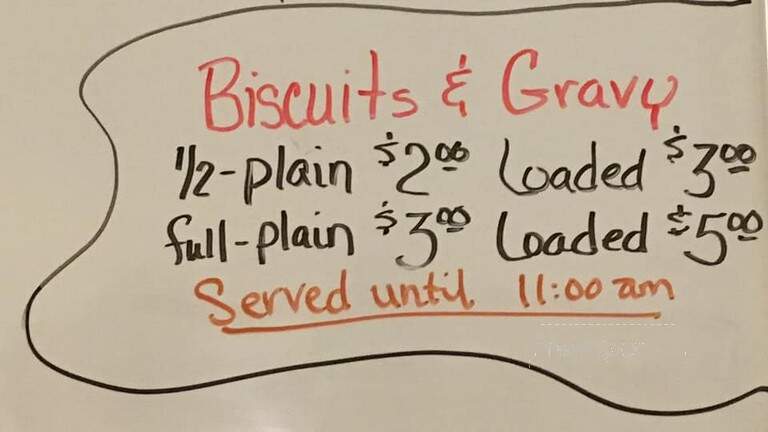 Biscuits & Gravy
1/2-plain $2.00 Loaded $3.00
full-plain $3.00 Loaded $5.00
Served until 11:00 am